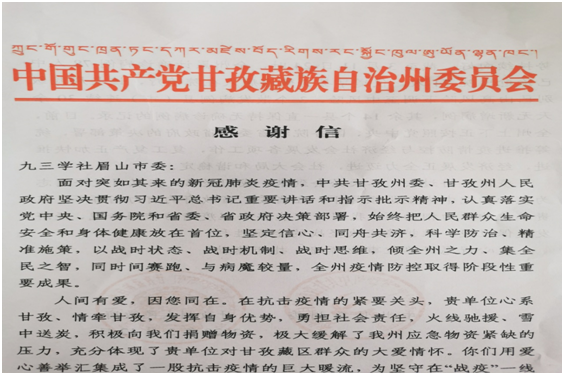 ཀྲུང་གོ་གུང་ཁྲན་ཏང་དཀར་མཛེས་བོད་རིགས་རང་སྐྱོང་ཁུལ་ཨུ་ཡོན་ལྷན་ཁང་།
中国共产党甘孜藏族自治州委员会
感谢信
九三学社眉山市委：
面对突如其来的新冠肺炎疫情，中共甘孜州委、甘孜州人民
政府坚决贯彻习近平总书记重要讲话和指示批示精神，认真落实
党中央、国务院和省委、省政府决策部署，始终把人民群众生命
安全和身体健康放在首位，坚定信心、同舟共济，科学防治、精
准施策，以战时状态、战时机制、战时思维，倾全州之力、集全
民之智，同时间赛跑、与病魔较量，全州疫情防控取得阶段性重
要成果。
人间有爱，因您同在。在抗击疫情的紧要关头，贵单位心系
甘孜、情牵甘孜，发挥自身优势，勇担社会责任，火线驰援、雪
中送炭，积极向我们捐赠物资，极大缓解了我州应急物资紧缺的
压力，充分体现了贵单位对甘孜藏区群众的大爱情怀。你们用爱
心善举汇集成了一股抗击疫情的巨大暖流，为坚守在“战疫”一线